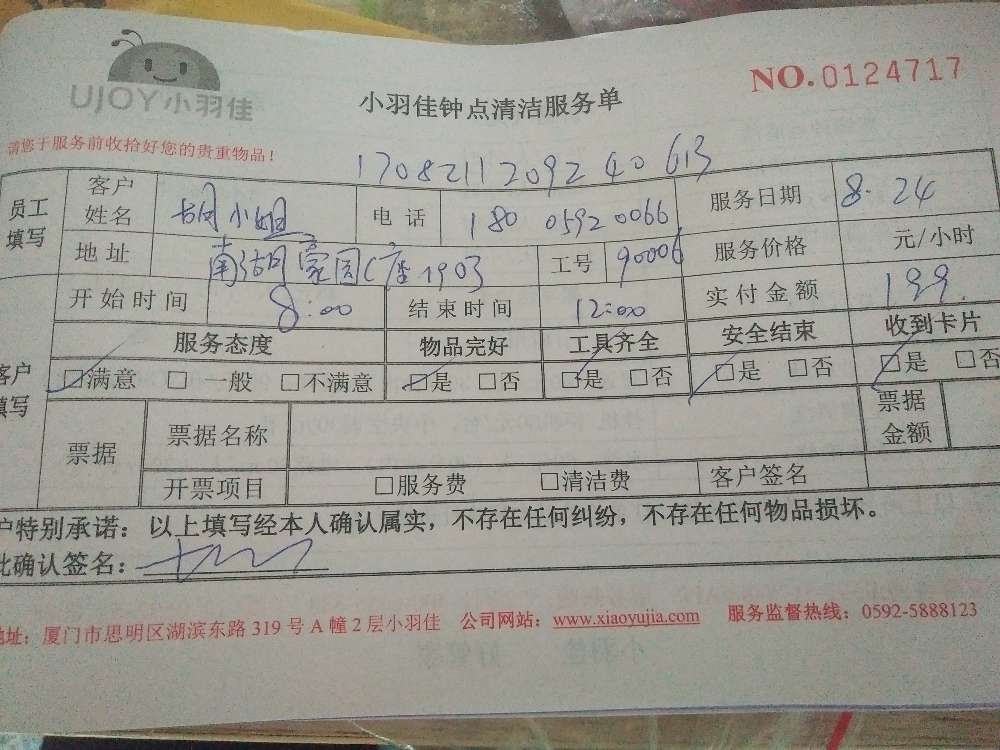 UJOY小羽佳
小羽佳钟点清洁服务单
NO.0124717
请您于服务前收拾好您的贵重物品!
170821120924０613
员工填写 客户姓名 胡小姐 电话 180 0592 0066 服务日期 8.24
地址 南湖豪园C座1903 工号 90006 服务价格 元/小时
开始时间 8:00 结束时间 12:00 实付金额 199.
客户填写 服务态度 物品完好 工具齐全 安全结束 收到卡片
□满意 □一般 □不满意 □是 □否 □是 □否 □是 □否 □是 □否
票据 票据名称 票据金额
开票项目 □服务费 □清洁费 客户签名
户特别承诺：以上填写经本人确认属实，不存在任何纠纷，不存在任何物品损坏。
此确认签名：
地址：厦门市思明区湖滨东路319号A幢2层小羽佳 公司网站：www.xiaoyujia.com 服务监督热线：0592-5888123